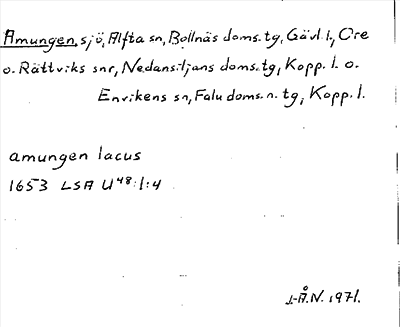 Amungen, sjö, Alfta sn, Bollnäs doms.tg, Gävl. l., Ore
o. Rättviks snr, Nedansiljans doms.tg, Kopp. l. o.
Envikens sn, Falu doms.n. tg, Kopp. l.
amungen lacus
1653 LSA U48:1:4
J-Å.N. 1971.